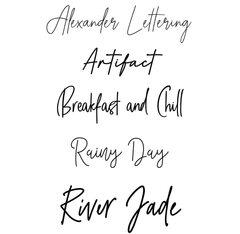 Alexander Lettering
Artifact
Breakfast and Chill
Rainy Day
River Jade